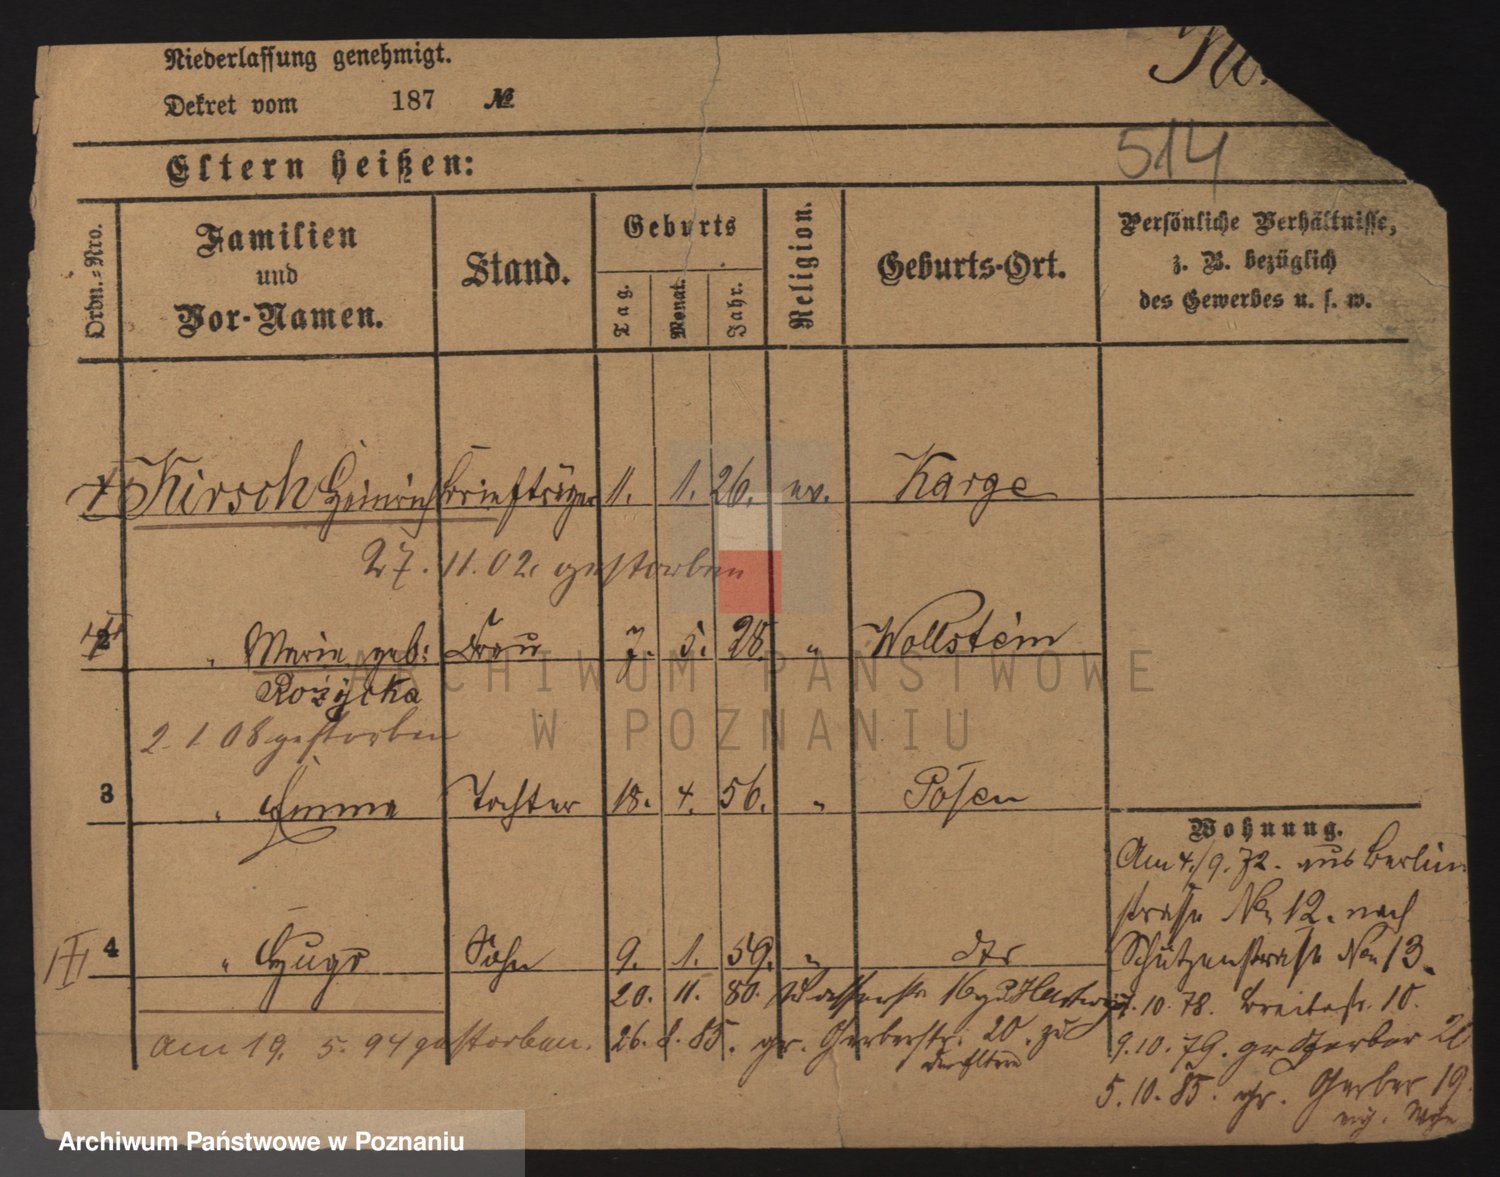 Niederlassung genehmigt.
Dekret vom 187 №
514
Eltern heißen:
Ordn.-Nro. Familien und Vor-Namen. Stand. Geburts Tag. Monat. Jahr. Religion. Geburts-Ort. Persönliche Verhältnisse, z. B. bezüglich des Gewerbes u. s. w.
Kirsch Heinrich Briefträger 11. 1. 26. ev. Karge
27. 11. 02. gestorben
2 " Marie geb: Frau 7. 5. 28. " Wollstein
Rożycka
2. 1. 08 gestorben
3 " Emma Tochter 18. 4. 56. " Posen
Wohnung.
Am 4./9. 72. aus Berliner
straße No 12. nach
III 4 " Hugo Sohn 9. 1. 59. " dto
Schützenstraße No 13.
20. 11. 80. Wasserstr 16
10. 78. Breitestr. 10.
am 19. 5. 94 gestorben.
26. 8. 85. gr. Gerberstr. 20. zu
den Eltern
9. 10. 79. gr Gerber 20
5. 10. 85. gr. Gerber 19.
ARCHIWUM PAŃSTWOWE
W POZNANIU
Archiwum Państwowe w Poznaniu